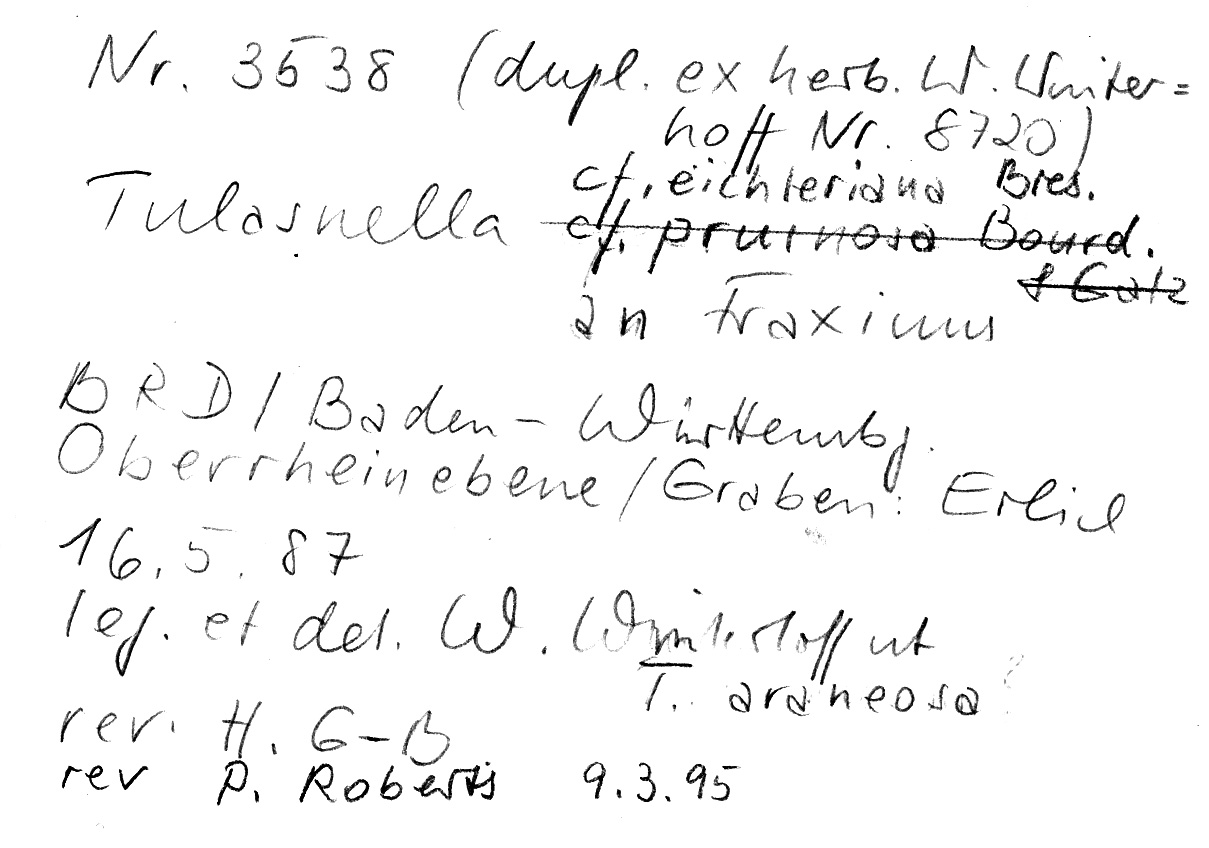 Nr. 3538 (dupl. ex herb. W. Winter=
hoff Nr. 8720)
cf. eichleriana Bres.
Tulasnella cf. pruinosa Bourd.
& Galz
an Fraxinus
BRD/Baden-Württembg.
Oberrheinebene/Graben: Erlich
16.5.87
leg. et det. W. Winterhoff ut
T. araneosa
rev. H. G-B
rev P. Roberts 9.3.95